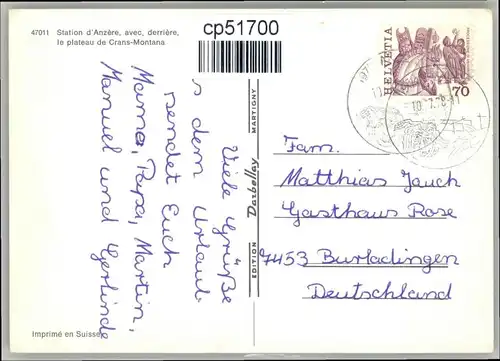 47011 Station d'Anzère, avec, derrière,
le plateau de Crans-Montana
cp51700
HELVETIA
70
Viele Grüße
s dem Urlaub
sendet Euch
Mama, Papa, Martin,
Manuel und Gerlinde
EDITION Darbellay MARTIGNY
Fam.
Matthias Jauch
Gasthaus Rose
7453 Burladingen
Deutschland
Imprimé en Suisse